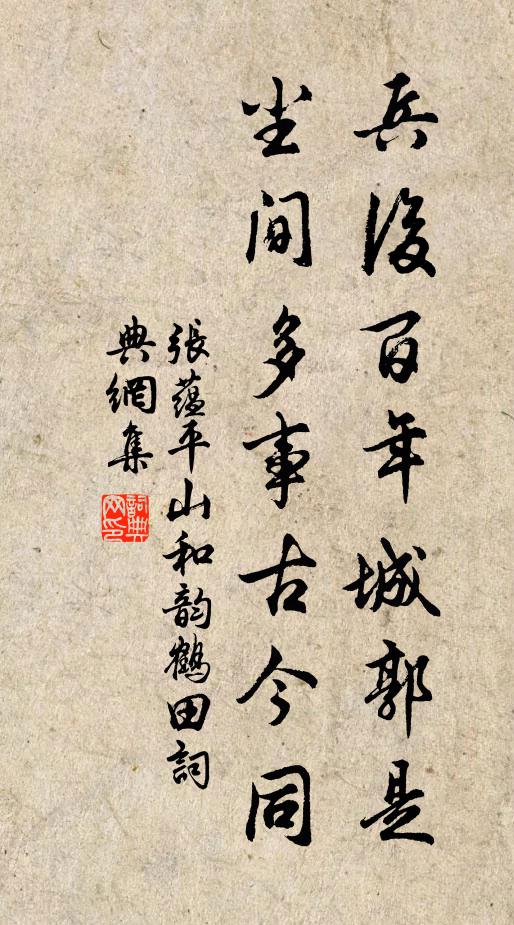 兵後百年城郭是
坐間多事古今同
張蘊平山和韵鶴田詞
典網集
詞典網印